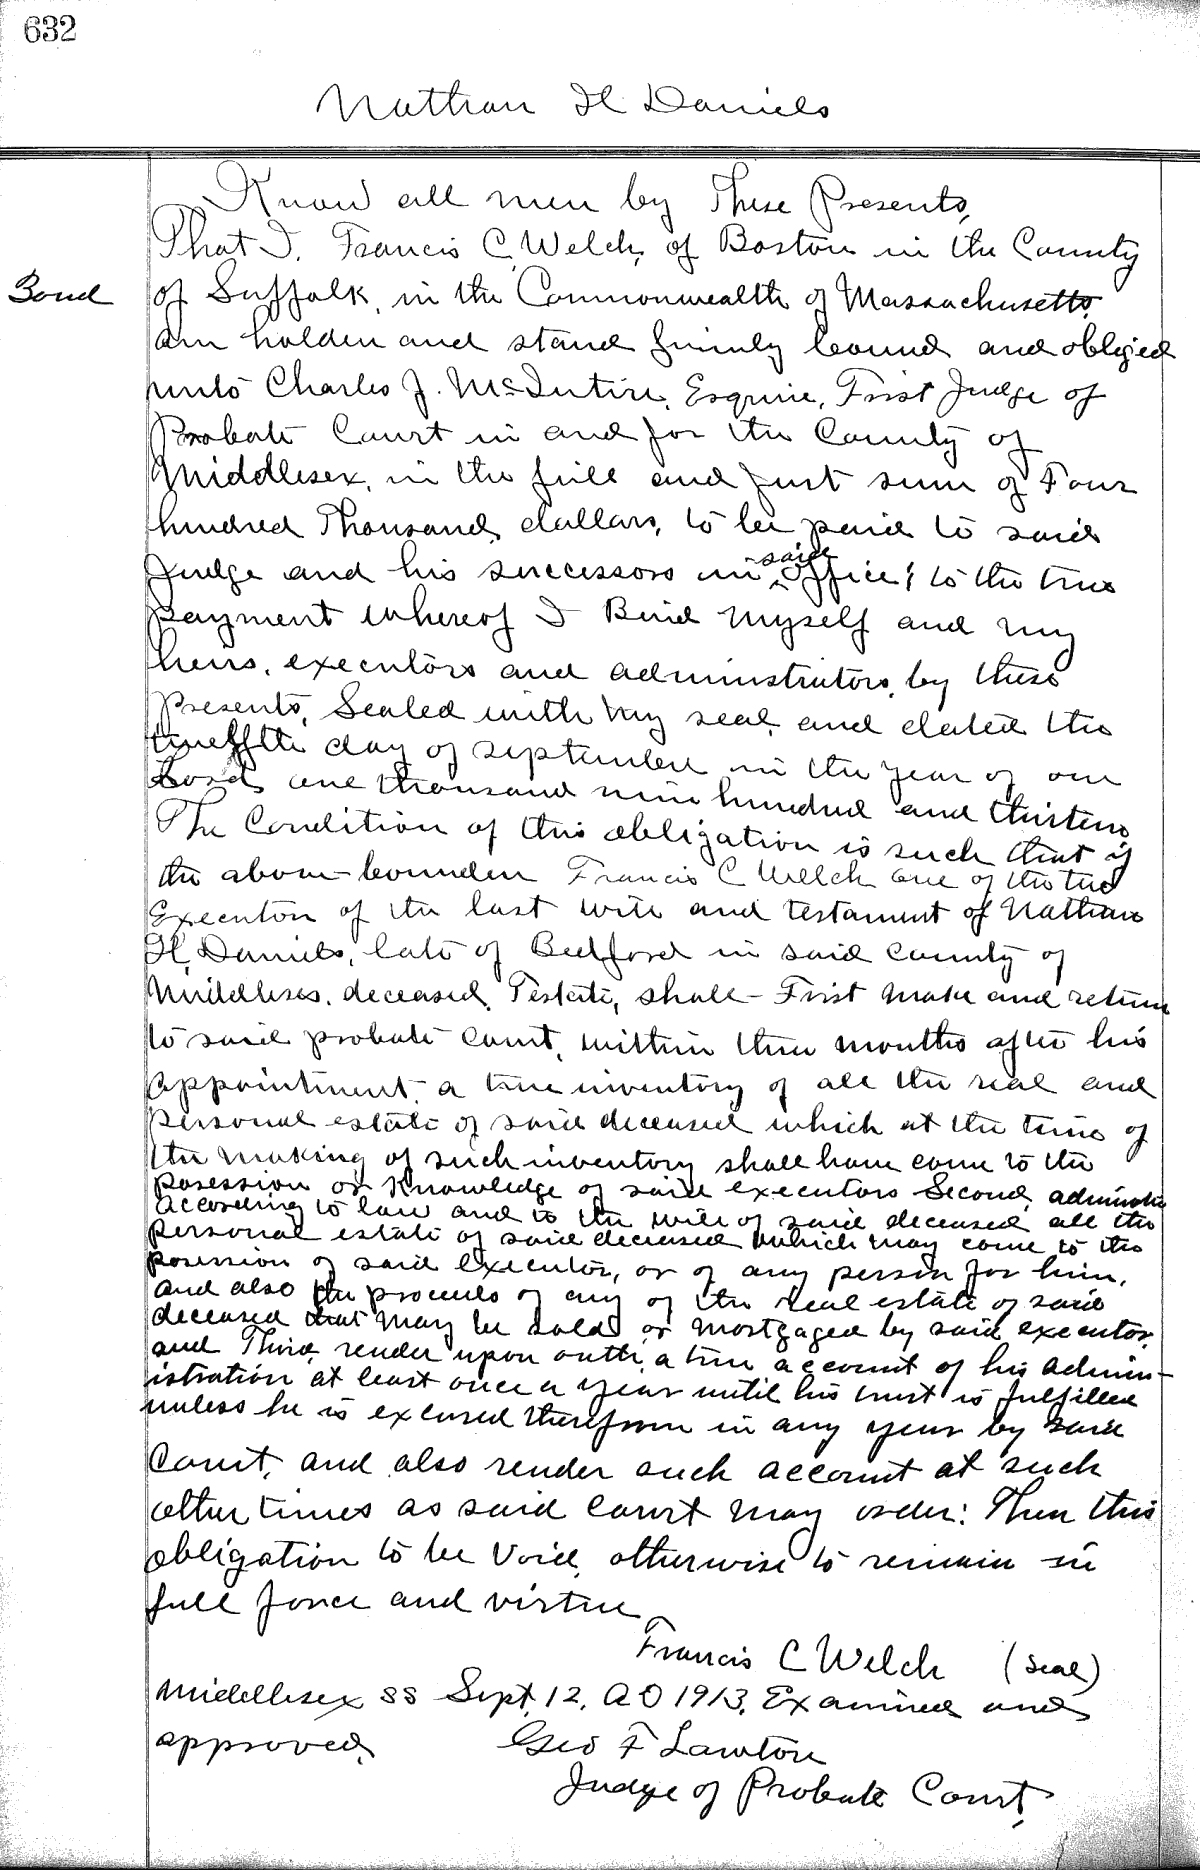 632
Nathan H Daniels
Know all men by These Presents,
That I, Francis C. Welch, of Boston in the County
Bond
of Suffolk, in the Commonwealth of Massachusetts,
am holden and stand firmly bound and obliged
unto Charles J. McIntire, Esquire, First Judge of
Probate Court in and for the County of
Middlesex, in the full and just sum of Four
hundred Thousand dollars, to be paid to said
said
Judge and his successors in ^ office; to the true
payment whereof I Bind myself and my
heirs, executors and administrators, by these
presents, Sealed with my seal, and dated the
twelfth day of september in the year of our
Lord, one thousand nine hundred and thirteen
The Condition of this obligation is such that if
the above-bounden Francis C Welch one of the two
Executors of the last will and testament of Nathan
H. Daniels, late of Bedford in said County of
Middlesex, deceased, Testate, shall - First make and return
to said probate Court, within three months after his
appointment, a true inventory of all the real and
personal estate of said deceased which at the time of
the making of such inventory shall have come to the
posession or Knowledge of said executors Second, administer
according to law and to the will of said deceased all the
personal estate of said deceased which may come to the
posession of said executor, or of any person for him,
and also the proceeds of any of the real estate of said
deceased that may be sold or mortgaged by said executor,
and Third, render upon oath, a true account of his admin-
istration at least once a year until his trust is fulfilled
unless he is excused therefrom in any year by said
Court, and also render such account at such
other times as said court may order: Then this
obligation to be void, otherwise to remain in
full force and virtue
Francis C Welch (seal)
Middlesex SS Sept, 12, A D 1913, Examined and
approved, Geo F Lawton
Judge of Probate Court,